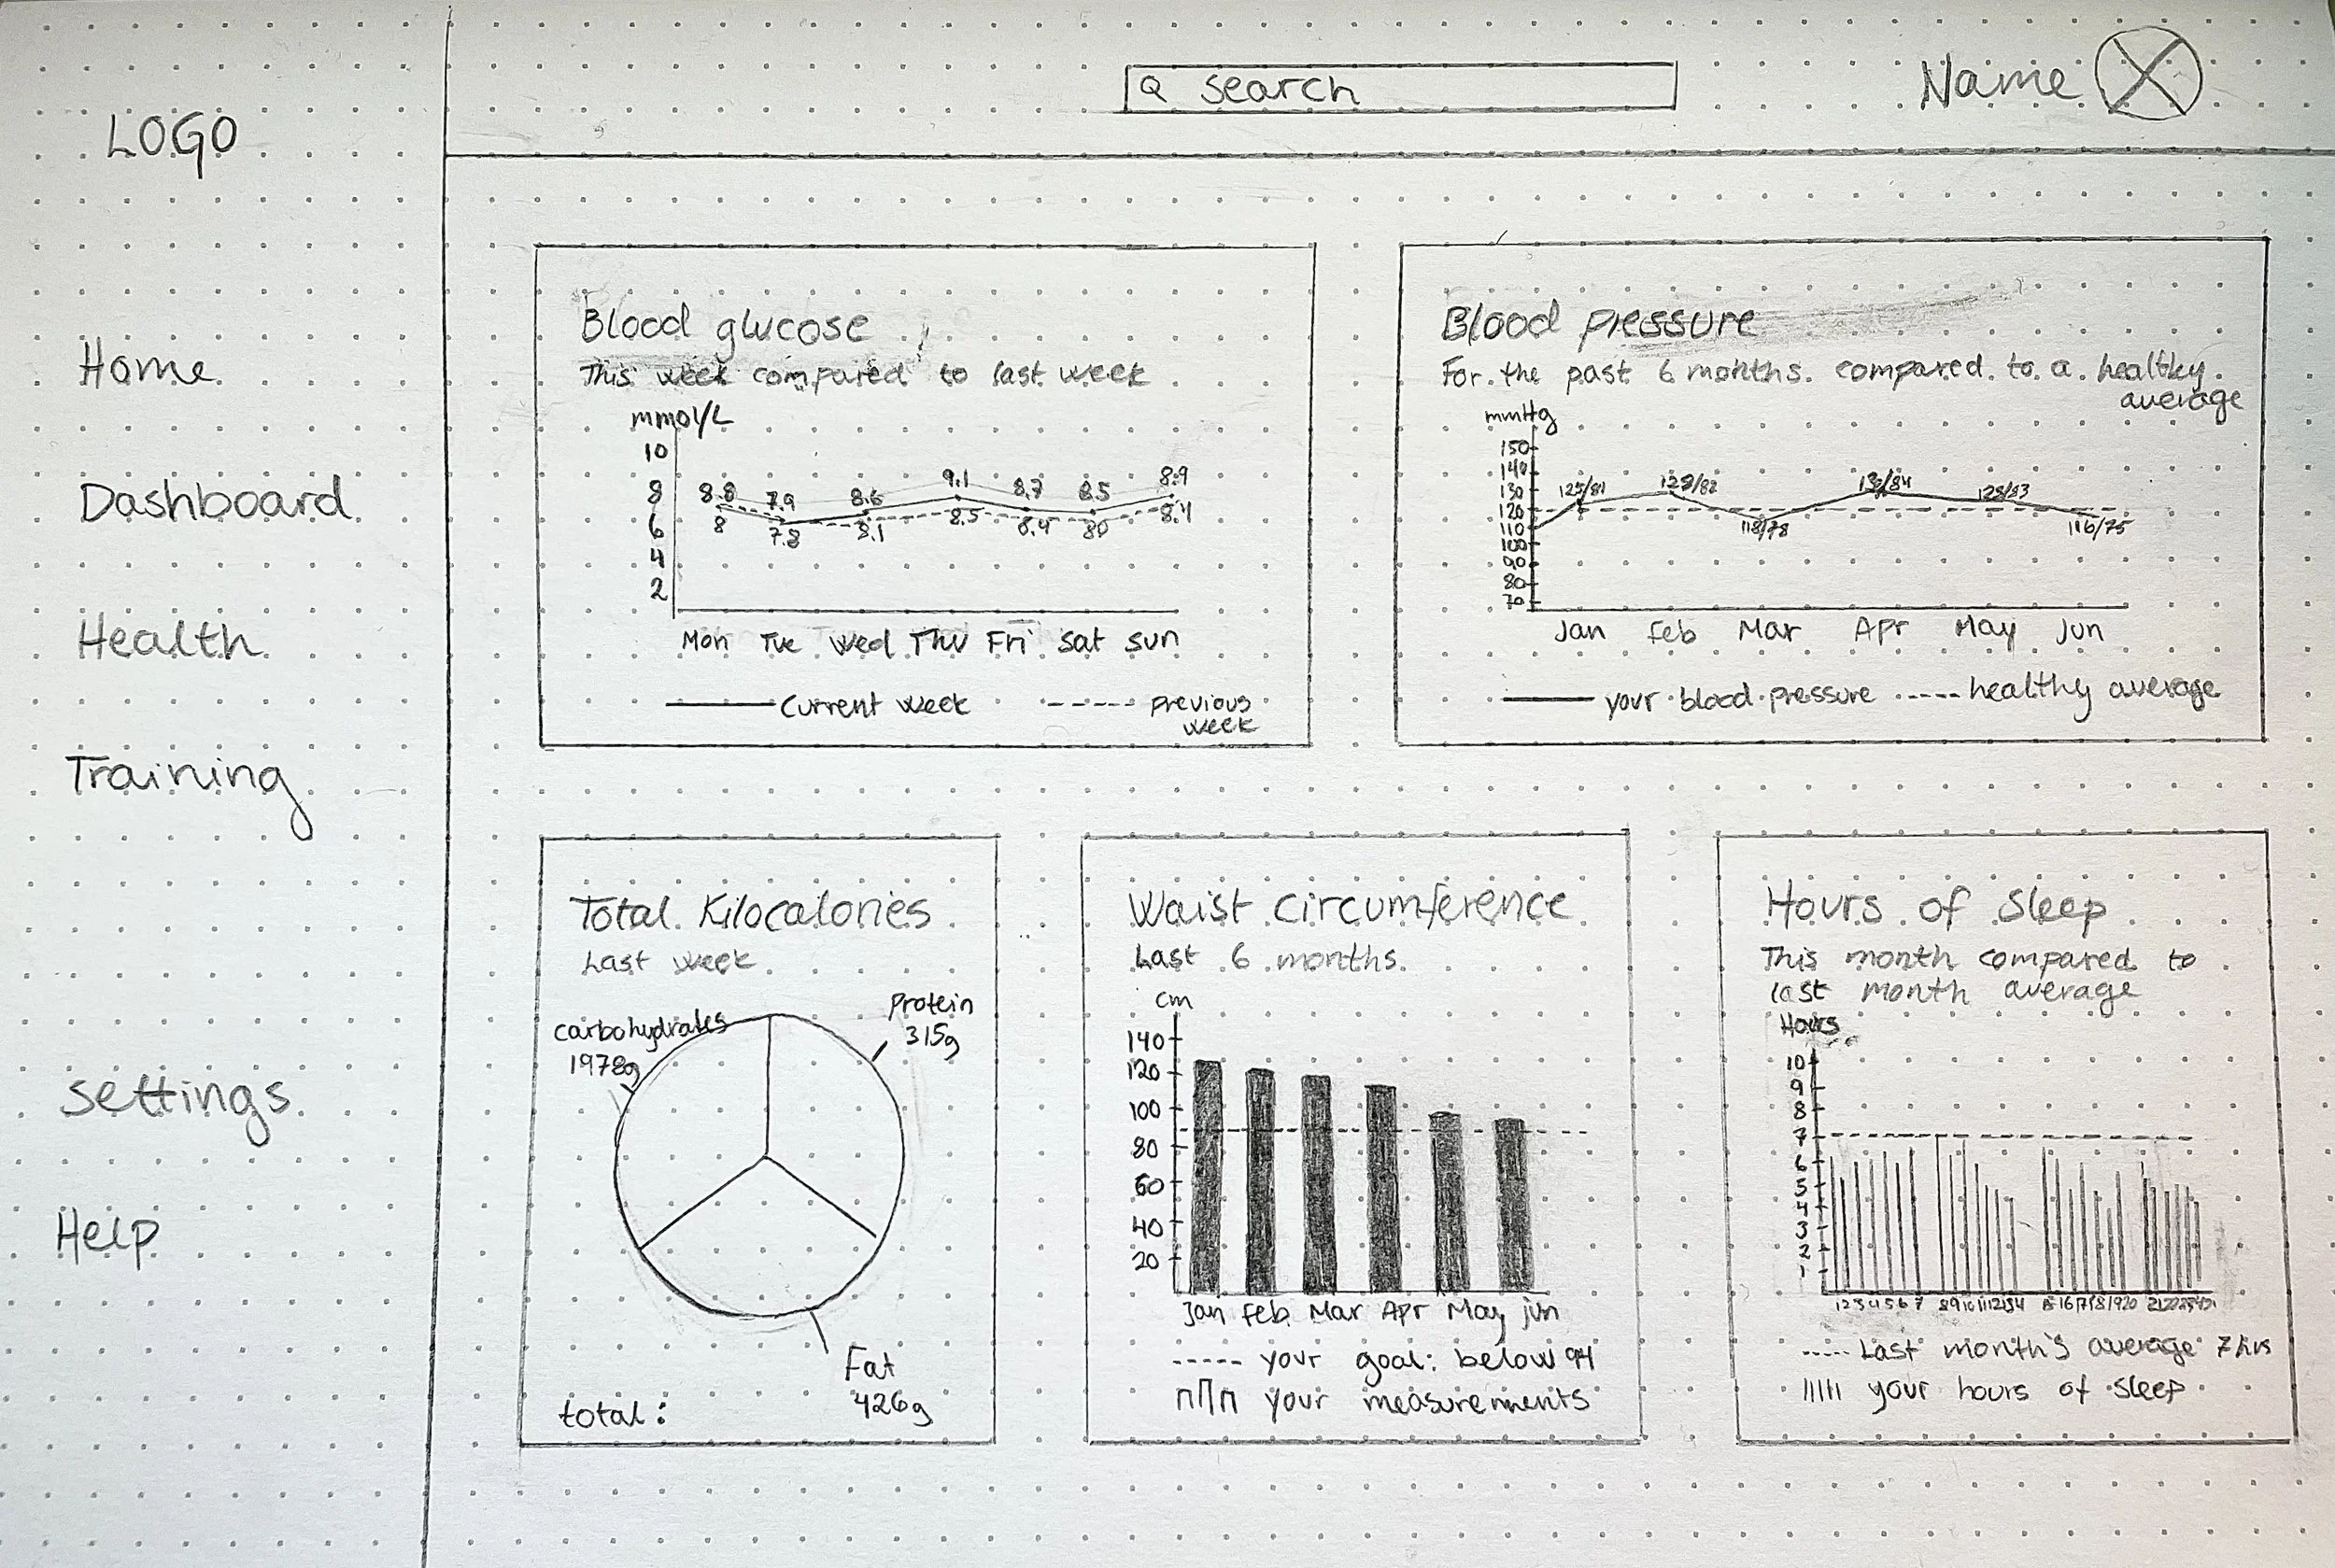 LOGO
Q search
Name
Home
Dashboard
Health
Training
settings
Help
Blood glucose
This week compared to last week
mmol/L
10
8
6
4
2
8.8 7.9 8.6 9.1 8.7 8.5 8.9
8 7.8 8.1 8.5 8.4 80 8.4
Mon Tue Wed Thu Fri Sat Sun
Current week
Previous
week
Blood pressure
For the past 6 months compared to a healthy
average
mmHg
150
140
130
120
110
100
90
80
70
125/81 128/82 118/78 132/84 128/83 116/75
Jan Feb Mar Apr May Jun
your blood pressure
healthy average
Total Kilocalories
Last week
carbohydrates
1978g
Protein
315g
Fat
426g
total:
Waist circumference
Last 6 months
cm
140
120
100
80
60
40
20
Jan Feb Mar Apr May jun
your goal: below 94
your measurements
Hours of Sleep
This month compared to
last month average
Hours
10
9
8
7
6
5
4
3
2
1
1 2 3 4 5 6 7 8 9 10 11 12
Last month's average 7 hrs
your hours of sleep